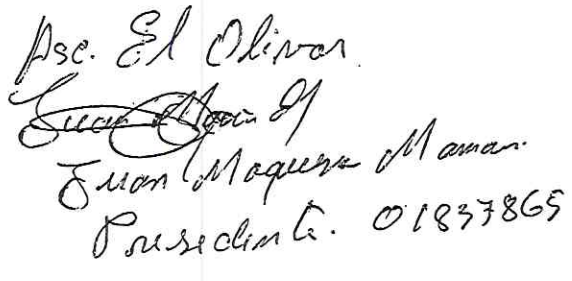 Asc. El Olivar
Juan Maquera Maman.
Presidente. 01837865